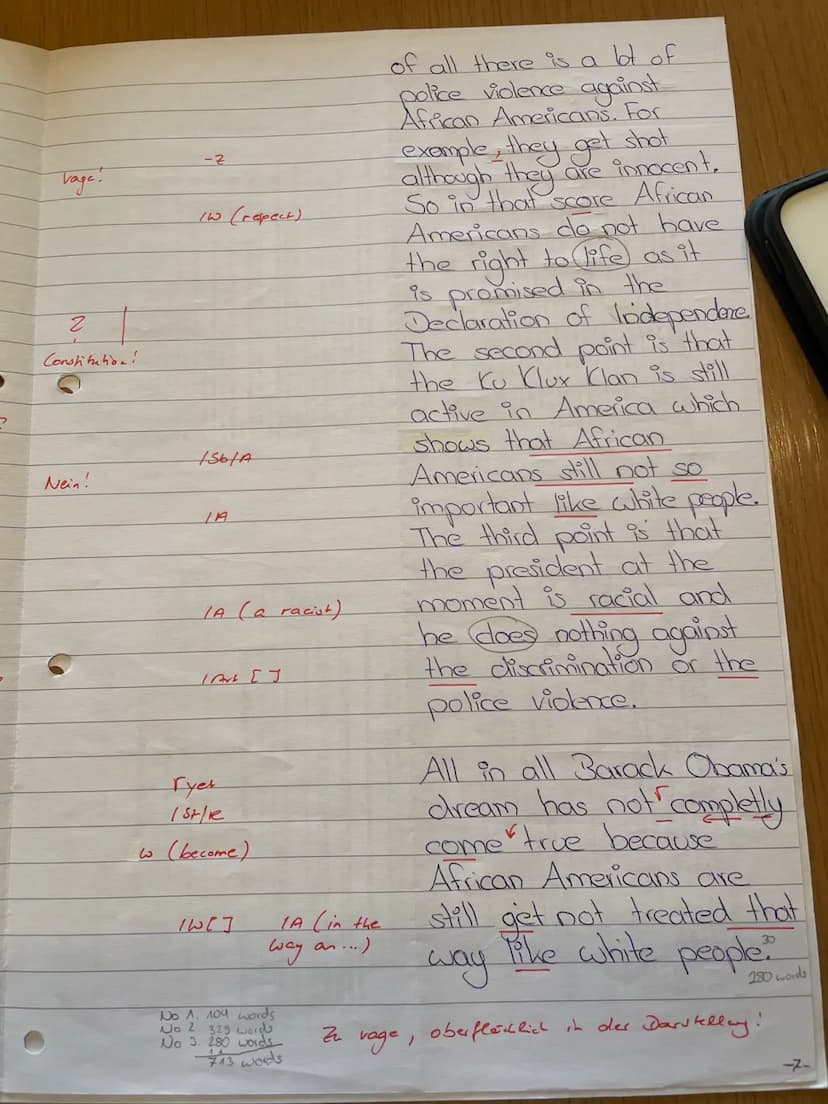 of all there is a lot of
police violence against
African Americans. For
-z
example, they get shot
vage!
although they are innocent.
So in that score African
/W (respect)
Americans do not have
the right to life as it
is promised in the
?
Declaration of Independence
Constitution!
The second point is that
the Ku Klux Klan is still
active in America which
shows that African
/Sb/A
Americans still not so
Nein!
important like white people.
/A
The third point is that
the president at the
moment is racial and
/A (a racist)
he does nothing against
the discrimination or the
/Art []
police violence.
All in all Barack Obama's
yet
dream has not completly
/St/R
come true because
W (become)
African Americans are
still get not treated that
/W[] /A (in the
way an...)
way like white people.
30
280 words
No 1. 104 words
No 2. 329 words
No 3. 280 words
713 words
Zu vage, oberflächlich in der Darstellung!
-7-